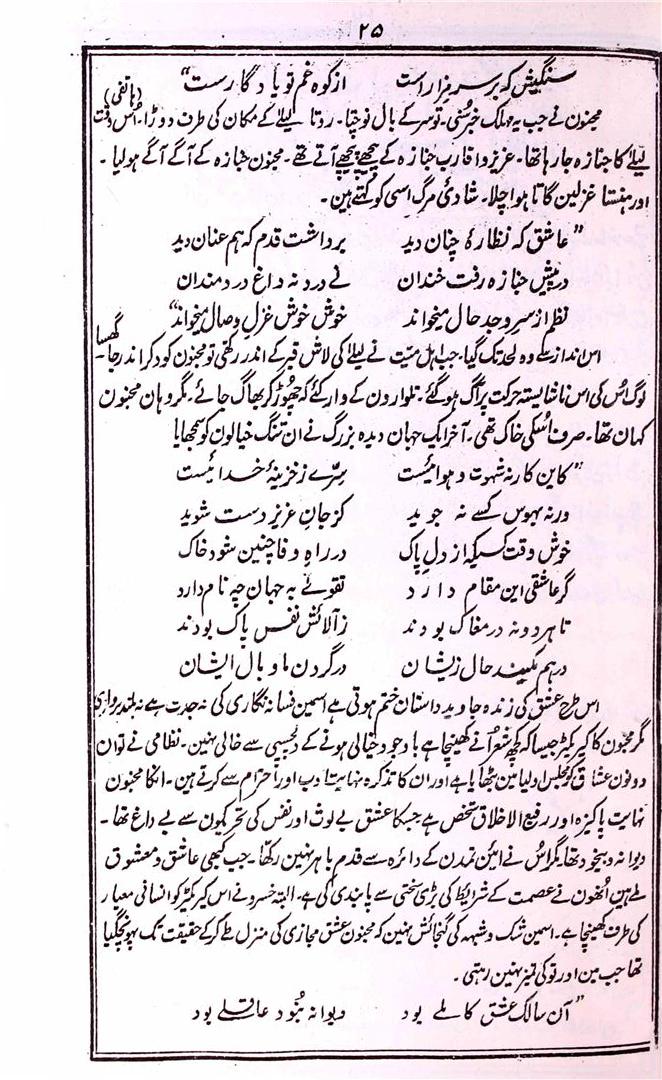 ۲۵
سنگیش کہ بر سر مزار است از کوہ غم تو یادگار ست"
(ہاتفی)
مجنون نے جب یہ مہلک خبر سُنی۔ تو سر کے بال نوچتا۔ روتا لیلےٰ کے مکان کی طرف دوڑا۔ اُس وقت
لیلےٰ کا جنازہ جا رہا تھا۔ عزیز و اقارب جنازہ کے پیچھے پیچھے آتے تھے۔ مجنون جنازہ کے آگے آگے ہو لیا۔
اور ہنستا غزلین گاتا ہوا چلا۔ شادیٔ مرگ اسی کو کہتے ہین۔
"عاشق کہ نظارۂ چنان دید برداشت قدم کہ ہم عنان دید
در پیش جنازہ رفت خندان نے درد نہ داغ دردمندان
نظم از سر وجد حال میخواند خوش خوش غزل وصال میخواند"
اس انداز سے وہ لحد تک گیا۔ جب اہل میّت نے لیلےٰ کی لاش قبر کے اندر رکھی تو مجنون کود کر اندر جا گھسا۔
لوگ اُس کی اس ناشایستہ حرکت پر آگ ہو گئے۔ تلوارون کے وار کئے کہ چھوڑ کر بھاگ جائے۔ مگر وہان مجنون
کہان تھا۔ صرف اُسکی خاک تھی۔ آخر ایک جہان دیدہ بزرگ نے ان تنگ خیالون کو سمجھایا
"کاین کار نہ شہوت و ہوائیست سِرّے ز خزینۂ خدائیست
ورنہ بہوس کسے نہ جوید کز جانِ عزیز دست شوید
خوش وقت کسیکہ از دلِ پاک در راہِ وفا چنین شود خاک
گر عاشقی این مقام دارد تقوےٰ بہ جہان چہ نام دارد
تا ہر دو نہ در مغاک بودند ز آلائش نفس پاک بودند
در ہم مکنید حال زیشان در گردن ما وبال ایشان
اس طرح عشق کی زندہ جاوید داستان ختم ہوتی ہے اسمین فسانہ نگاری کی نہ جدت ہے نہ بلند پروازی
مگر مجنون کا کیرکیٹر جیسا کہ کچھ شعرا نے کھینچا ہے باوجود خیالی ہونے کے دلچسپی سے خالی نہین۔ نظامی نے تو ان
دونون عشاق کو مجلس اولیا مین بٹھایا ہے اور ان کا تذکرہ نہایت ادب اور احترام سے کرتے ہین۔ انکا مجنون
نہایت پاکیزہ اور رفیع الاخلاق شخص ہے جسکا عشق بے لوث اور نفس کی تحریکون سے بے داغ تھا۔
دیوانہ و بیخود تھا۔ مگر اُس نے آئین تمدن کے دائرہ سے قدم باہر نہین رکھا۔ جب کبھی عاشق و معشوق
ملے ہین اُنھون نے عصمت کے شرایط کی بڑی سختی سے پابندی کی ہے۔ البتہ خسرو نے اس کیرکیٹر کو انسانی معیار
کی طرف کھینچا ہے۔ اسمین شک و شبہہ کی گنجائش نہین کہ مجنون عشق مجازی کی منزل طے کر کے حقیقت تک پہونچ گیا
تھا جب من اور تو کی تمیز نہین رہتی۔
"آن سالک عشق کاملے بود دیوانہ نبُود عاقلے بود